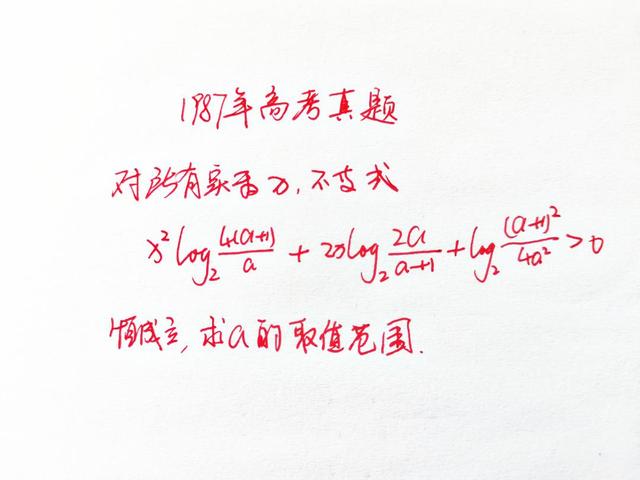 1987年高考真题
对所有实数x,不等式
x²log₂4(a+1)/a + 2xlog₂2a/(a+1) + log₂(a+1)²/4a² > 0
恒成立,求a的取值范围.